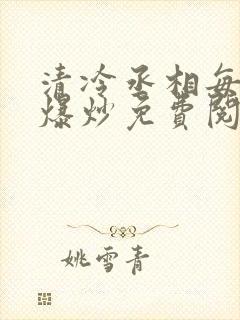 清冷丞相每
爆炒免费阅
姚雪青